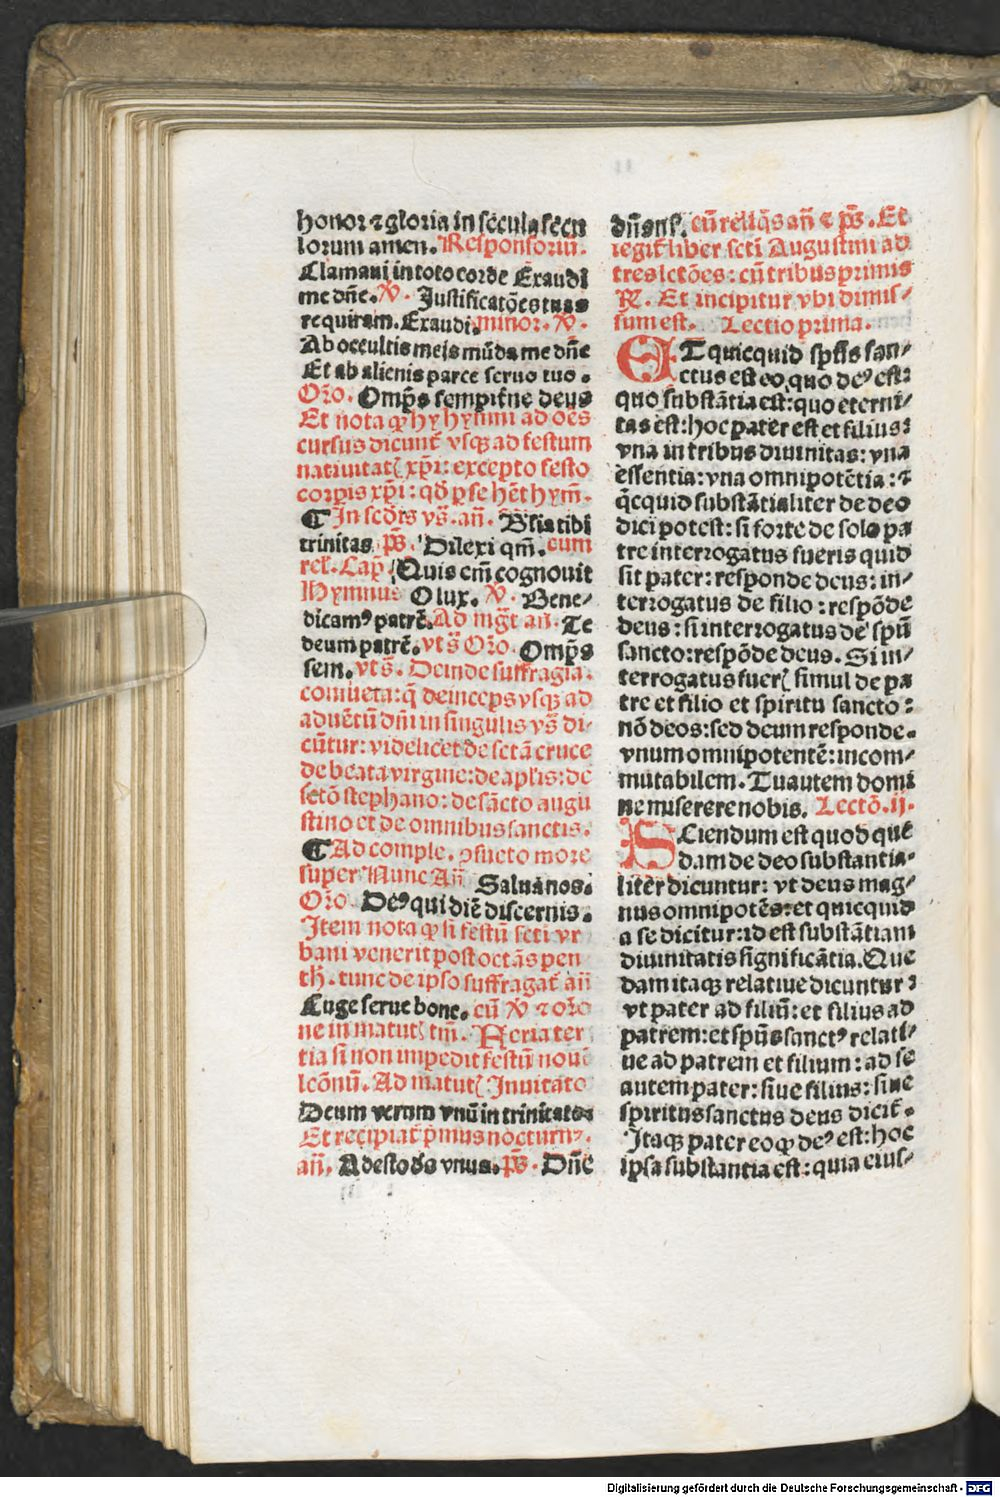 honor ⁊ gloria in secula secu
lorum amen. Responsoriū.
Clamaui in toto corde Exaudi
me dn̄e. ℣. Justificatōes tuas
requiram. Exaudi. minor. ℣.
Ab occultis meis mūda me dn̄e
Et ab alienis parce seruo tuo.
Orō. Omp̄s sempiṫne deus
Et nota ꝙ hy hymni ad oēs
cursus dicunt̄ vsqꝫ ad festum
natiuitatꝭ xp̄i: excepto festo
corpis xp̄i: qd̄ ꝑ se hēt hym̄.
¶ In scd̄is vs̄. an̄. Bn̄sia tibi
trinitas p̄s. Dilexi qm̄. cum
rel̄. Cap̄ Quis em̄ cognouit
Hymnus O lux. ℣. Bene⸗
dicamꝰ patrē. Ad mgt̄ an̄. Te
deum patrē. vt s̄ Orō. Omp̄s
sem. vt s̄. Deinde suffragia.
cōsueta: q̄ deinceps vsqꝫ ad
aduētū dn̄i in singulis vs̄ di⸗
cūtur: videlicet de sctā cruce
de beata virgine: de apl̄is: de
sctō stephano: de sācto augu
stino et de omnibus sanctis.
¶ Ad comple. ꝯsueto more
super Nunc An̄ Salua nos.
Orō. Deꝰ qui diē discernis.
Item nota ꝙ si festū scti vr
bani venerit post octas̄ pen
th̄. tunc de ipso suffragat̄ an̄
Euge serue bone. cū ℣ ⁊ orō
ne in matutꝭ tm̄. Feria ter
tia si non impedit festū nouē
lcōnū. Ad matutꝭ Inuitato
Deum verum vnū in trinitate.
Et recipiat̄ p̄mus nocturnꝰ.
an̄. Adesto ds̄ vnus. p̄s. Dn̄e
dn̄s nr̄. cū reliq̄s an̄ ⁊ p̄s. Et
legit̄ liber scti Augustini ad
tres lctōes: cū tribus primis
℟. Et incipitur vbi dimis⸗
sum est. Lectio prima.
ET quicquid sp̄ūs san⸗
ctus est eo quo deꝰ est:
quo substātia est: quo eterni⸗
tas est: hoc pater est et filius:
vna in tribus diuinitas: vna
essentia: vna omnipotētia: ⁊
q̄cquid substātialiter de deo
dici potest: si forte de solo pa
tre interrogatus fueris quid
sit pater: responde deus: in⸗
terrogatus de filio: respōde
deus: si interrogatus de spū
sancto: respōde deus. Si in⸗
terrogatus fuerꝭ simul de pa
tre et filio et spiritu sancto:
nō deos: sed deum responde.
vnum omnipotentē: incom⸗
mutabilem. Tu autem domi
ne miserere nobis. Lectō. ij.
SCiendum est quod quē
dam de deo substantia⸗
liter dicuntur: vt deus mag⸗
nus omnipotēs: et quicquid
a se dicitur: id est substātiam
diuinitatis significātia. Que
dam itaqꝫ relatiue dicuntur:
vt pater ad filiū: et filius ad
patrem: et spūs sanctꝰ relati⸗
ue ad patrem et filium: ad se
autem pater: siue filius: siue
spiritus sanctus deus dicit̄.
Itaqꝫ pater eo ꝙ deꝰ est: hoc
ipsa substantia est: quia eius⸗
Digitalisierung gefördert durch die Deutsche Forschungsgemeinschaft - DFG